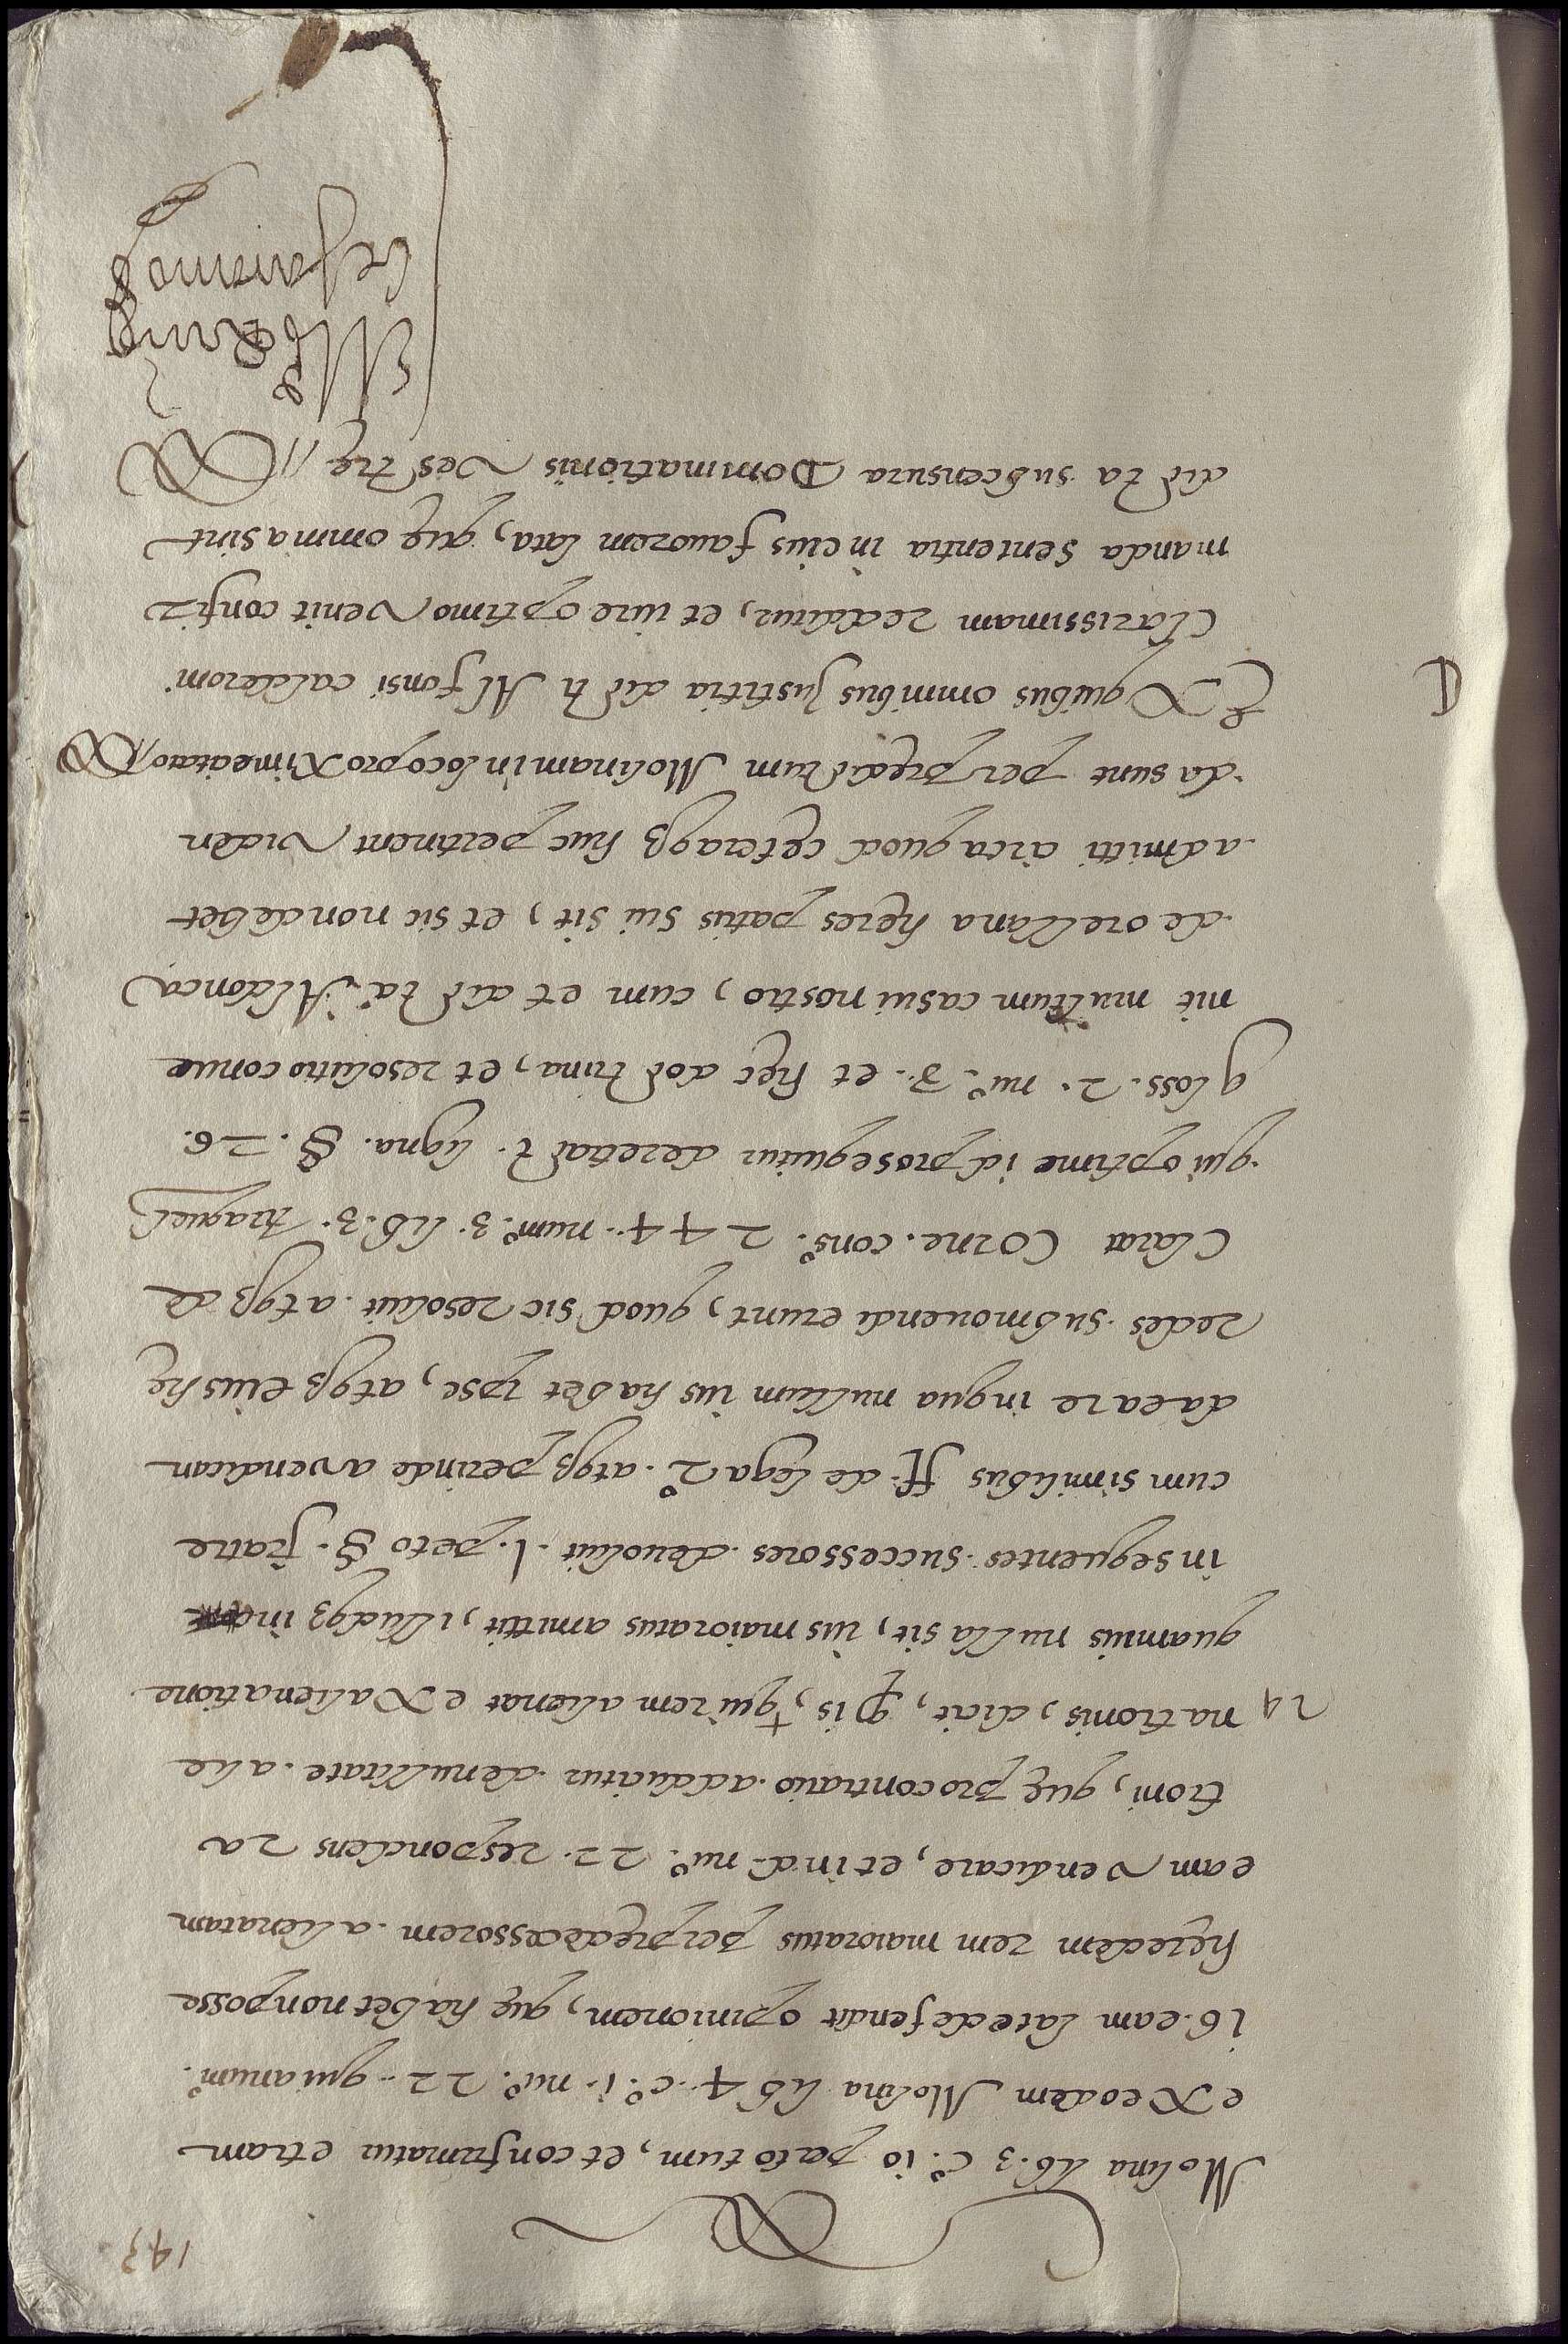 143
Molina lib. 3 c.º 10 per totum, et confirmatur etiam
eX eodem Molina lib 4. c.º 1. nu.º 22. qui a num.º
16. eam late defendit opinionem, quę habet non posse
hęredem rem maioratus per prędecessorem alienatam
eam vendicare, et in d. nu.º 22. respondens ra
tioni, quę pro contrario adducitur de nullitate alie
24 nationis, dicit, ꝙ is, + qui rem alienat eX alienatione
quamuis nulla sit, ius maioratus amittit, illudqȝ in
insequentes successores deuoluit. l. peto §. fratre
cum similibus ff. de lega 2.º atqȝ perinde a vendican
da ea re in qua nullum ius habet ipse, atqȝ eius hę
redes submouendi erunt, quod sic resoluit. atqȝ de
clarat Corne. cons.º 244. num.º 3. lib. 3. tiraquel
qui optime id prosequitur de retract. ligna. §. 26.
gloss. 2. nu.º 7. et hęc doctrina, et resolutio conue
nit multum casui nostro, cum et dicta Aldonca
de orellana hęres patris sui sit, et sic non debet
admitti circa quod cęteraqȝ huc pertinent viden
da sunt per prędictum Molinam in loco proXime citato //
EX quibus omnibus Justitia dicti Alfonsi calderon
clarissimam redditur, et iure optimo venit confir
manda sententia in eius fauorem lata, quę omnia sint
dicta sub censura Dominationis vestrę //